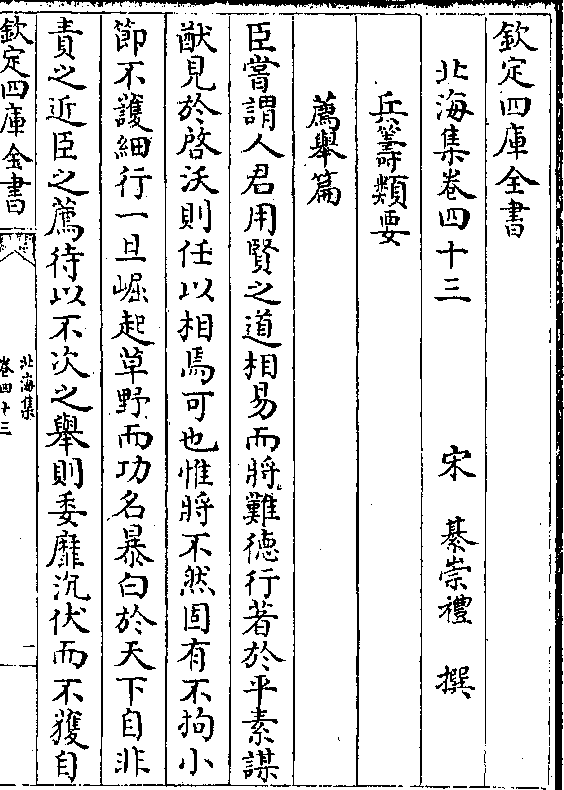 欽定四庫全書
北海集卷四十三
宋 綦崇禮 撰
兵籌類要
薦舉篇
臣嘗謂人君用賢之道相易而將難德行著於平素謀
猷見於啓沃則任以相焉可也惟將不然固有不拘小
節不護細行一旦崛起草野而功名暴白於天下自非
責之近臣之薦待以不次之舉則委靡沉伏而不獲自
欽定四庫全書
北海集
卷四十三
二